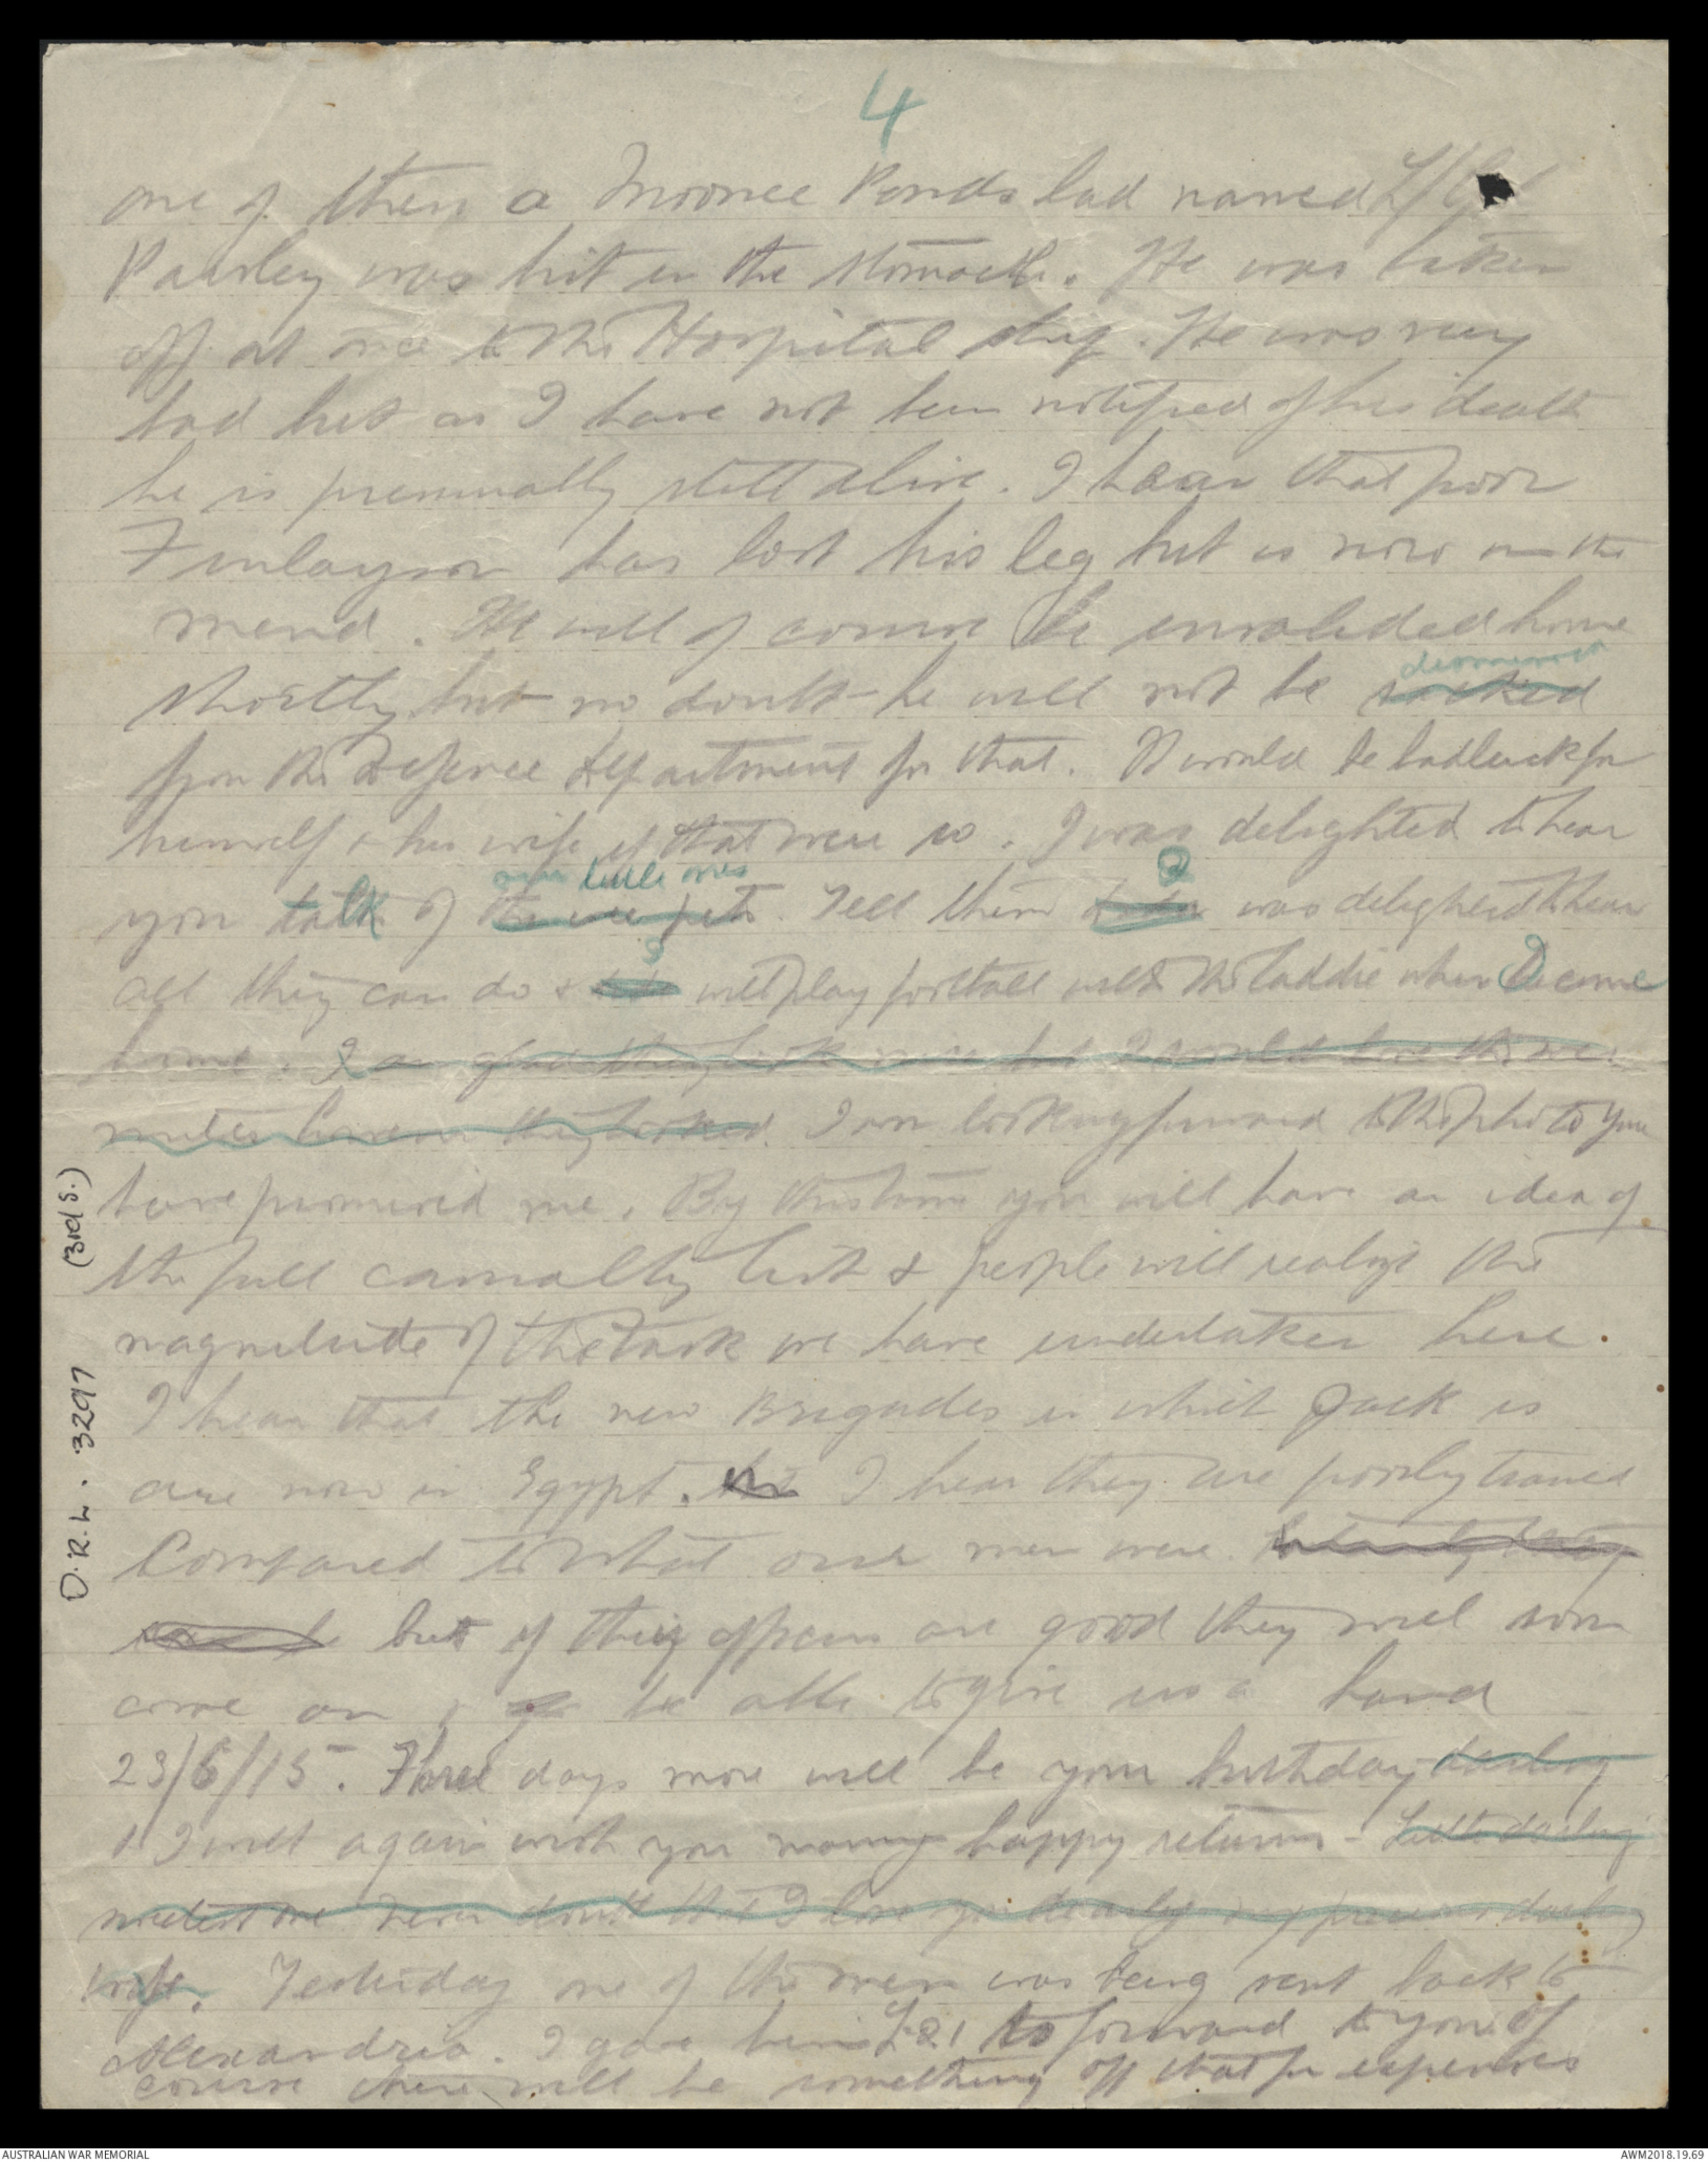 4
one of them a Moonee Ponds lad named L/C
Paisley was hit in the stomach. He was taken
off at once to the Hospital ship. He was very
bad but as I have not been notified of his death
he is presumably still alive. I hear that poor
Finlayson has lost his leg but is now on the
mend. He will of course be invalided home
dismissed
shortly but no doubt he will not be sacked
from the Defence Department for that. It would be bad luck for
himself & his wife if that were so. I was delighted to hear
our little ones
you talk of the wee pets. Tell them I was delighted to hear
all they can do & I will play football with the laddie when I come
home. I am glad they look but I would love them no
matter however they looked. I am looking forward to the photo you
have promised me. By this time you will have an idea of
the full casualty list & people will realize the
magnitude of the task we have undertaken here.
I hear that the new Brigades in which Jack is
are now in Egypt. I hear they are poorly trained
Compared to what our men were.
but if their officers are good they will soon
come on & be able to give us a hand
23/6/15. Three days more will be your birthday darling
& I will again wish you many happy returns - Little darling
sweetest one never doubt that I love you dearly my precious darling
wife. Yesterday one of the men was being sent back to
Alexandria. I gave him £21 to forward to you of
course there will be something off that for expenses
D.R.L. 3297 (3rd S.)
AUSTRALIAN WAR MEMORIAL
AWM2018.19.69